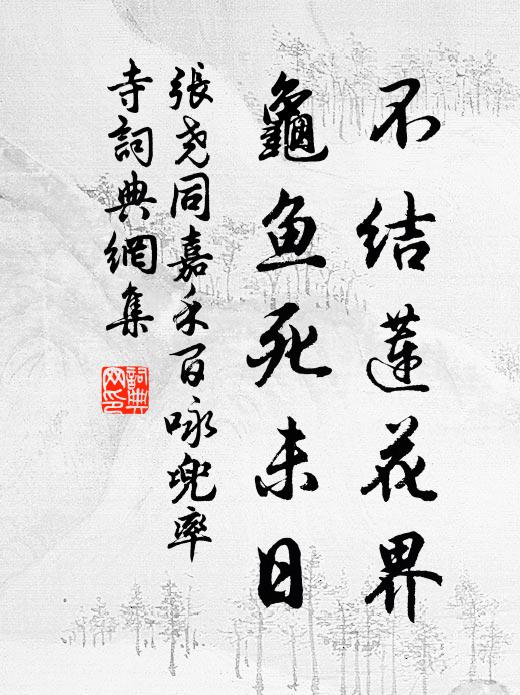 不结莲花界
龜鱼死未日
張尧同嘉禾百咏兜率
寺詞典網集
詞典網印